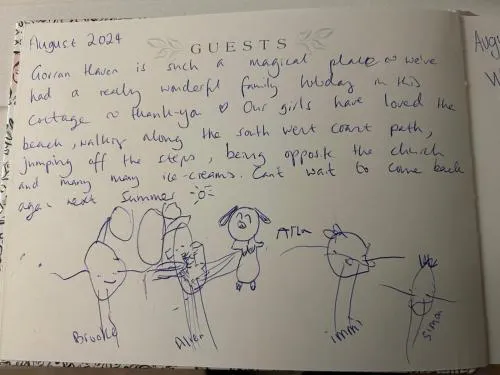 August 2024
GUESTS
Gorran Haven is such a magical place ~ we've
had a really wonderful family holiday in this
cottage ~ thank-you ♡ Our girls have loved the
beach, walking along the south west coast path,
jumping off the steps, being opposite the church
and many many ice-creams. Can't wait to come back
again next summer
Brooke
Oliver
Alla
immi
Sima
Augu
W